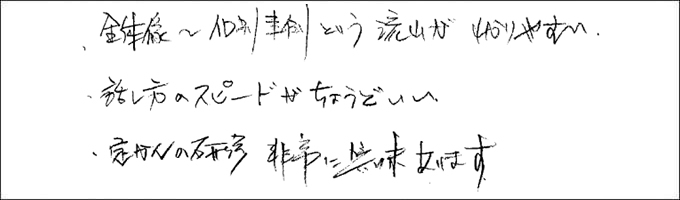 、全体像～個別事例という流れが わかりやすい.
・話し方のスピードがちょうどいい
・の研修 非常に興味 あります